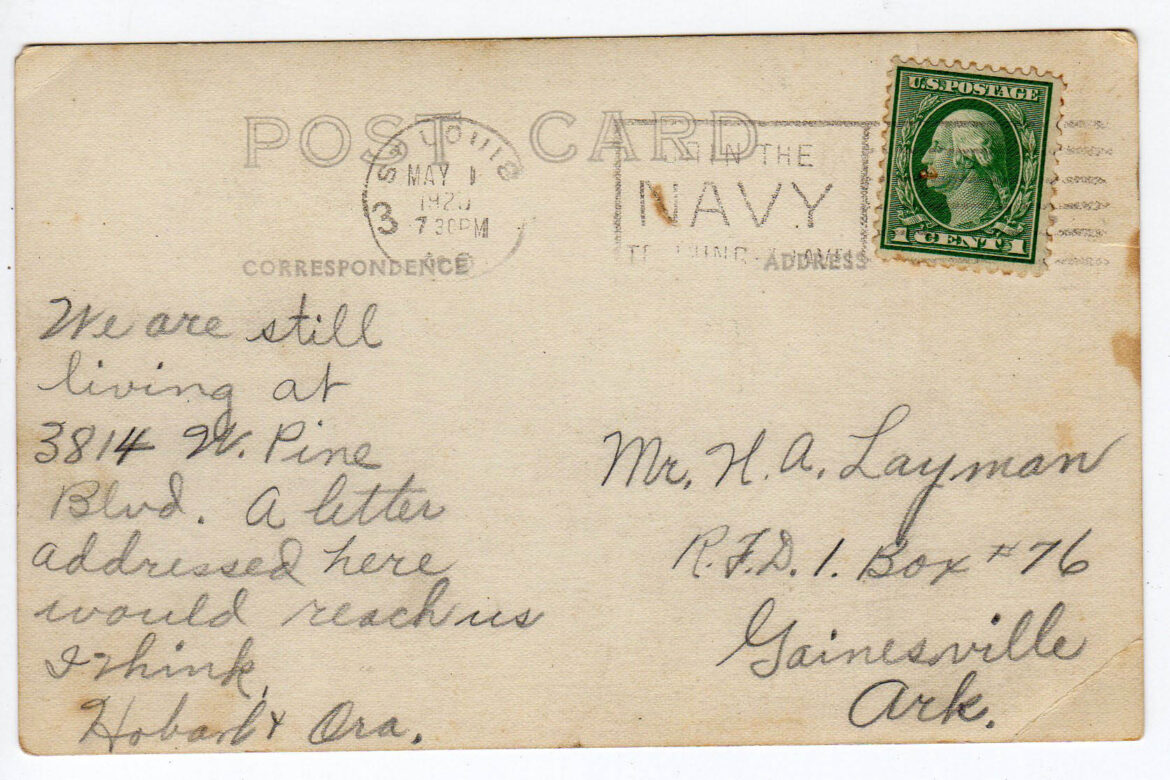 POST CARD
ST. LOUIS
MAY 1
7 30 PM
3
IN THE
NAVY
U.S. POSTAGE
1 CENT 1
CORRESPONDENCE
ADDRESS
We are still
living at
3814 W. Pine
Blvd. A letter
addressed here
would reach us
I think,
Hobart & Ora.
Mr. H. A. Layman
R.F.D. 1. Box #76
Gainesville
Ark.